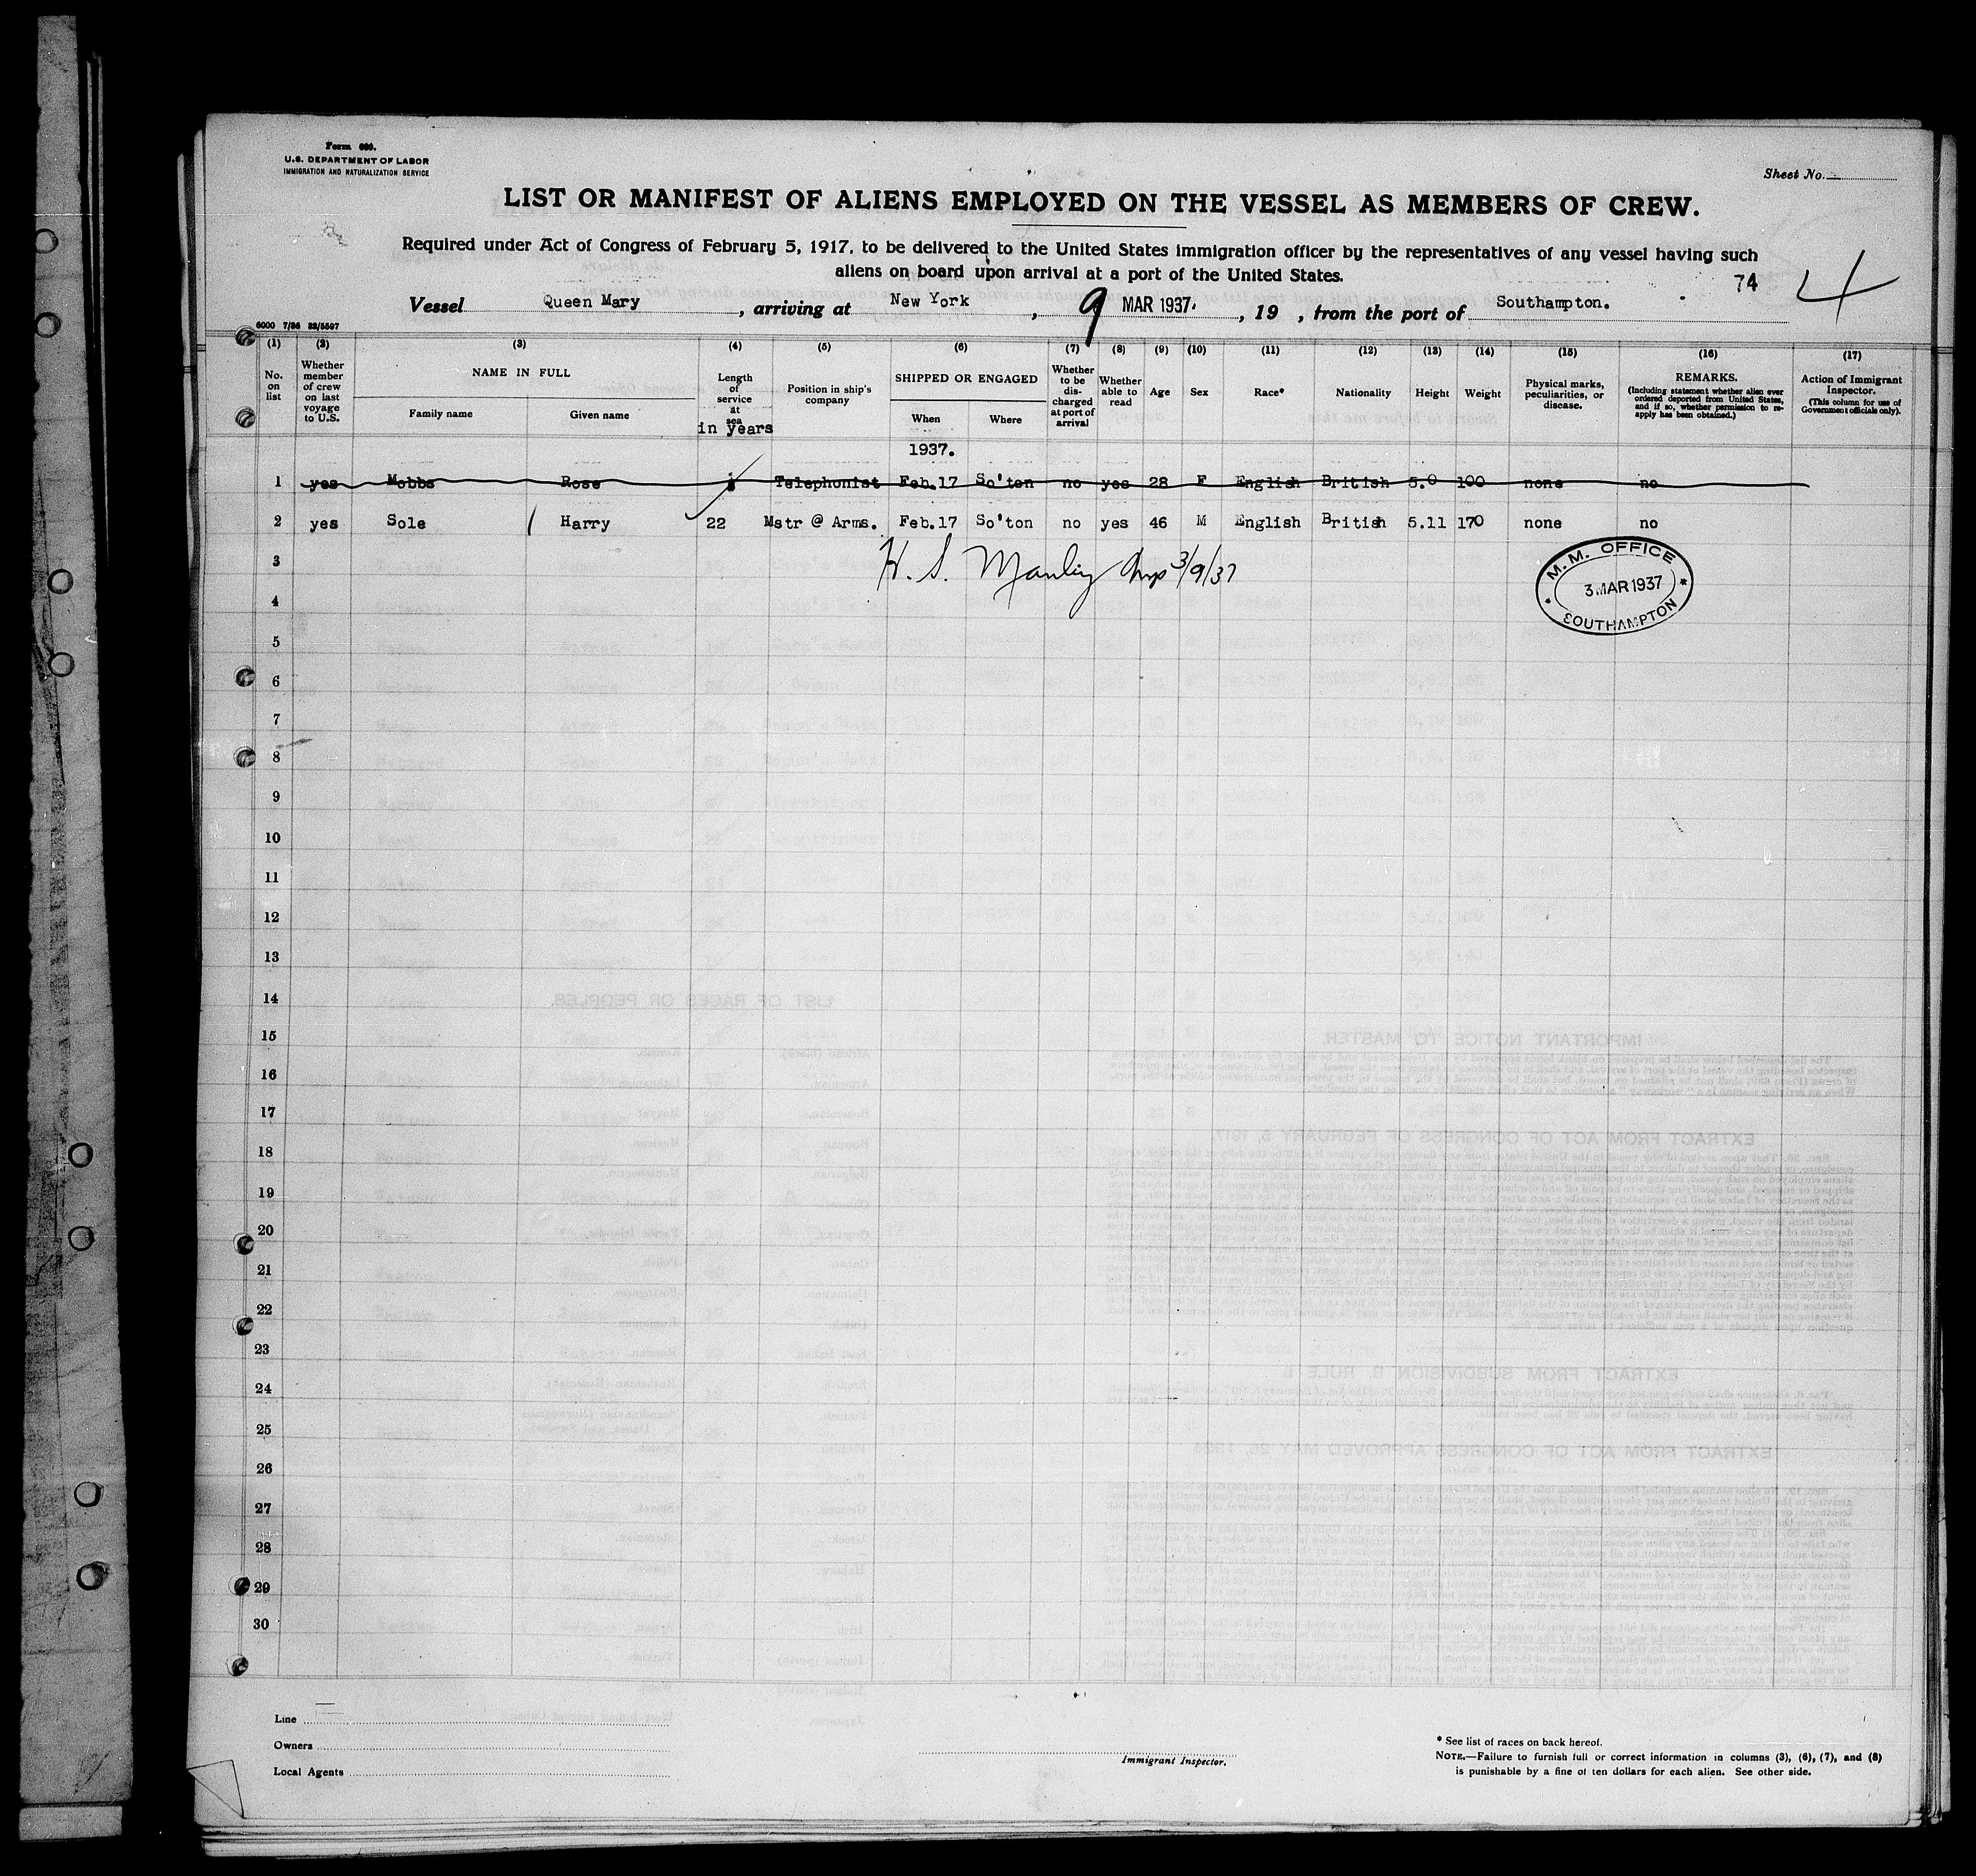 Form 680.
U.S. DEPARTMENT OF LABOR
IMMIGRATION AND NATURALIZATION SERVICE
Sheet No.
LIST OR MANIFEST OF ALIENS EMPLOYED ON THE VESSEL AS MEMBERS OF CREW.
Required under Act of Congress of February 5, 1917, to be delivered to the United States immigration officer by the representatives of any vessel having such
aliens on board upon arrival at a port of the United States.
74 4
Vessel Queen Mary, arriving at New York, 9 MAR 1937, 19 , from the port of Southampton.
6000 7/36 32/5597
(1) (2) (3) (4) (5) (6) (7) (8) (9) (10) (11) (12) (13) (14) (15) (16) (17)
No. on list
Whether member of crew on last voyage to U.S.
NAME IN FULL
Family name
Given name
Length of service at sea
in years
Position in ship's company
SHIPPED OR ENGAGED
When
Where
Whether to be discharged at port of arrival
Whether able to read
Age
Sex
Race*
Nationality
Height
Weight
Physical marks, peculiarities, or disease.
REMARKS.
(Including statement whether alien ever ordered deported from United States, and if so, whether permission to reapply has been obtained.)
Action of Immigrant Inspector.
(This column for use of Government officials only).
1937.
1 yes Mobbs Rose Telephonist Feb.17 So'ton no yes 28 F English British 5.0 100 none no
2 yes Sole Harry 22 Mstr @ Arms. Feb.17 So'ton no yes 46 M English British 5.11 170 none no
3 H. S. Manley Insp 3/9/37
M. M. OFFICE
3 MAR 1937
SOUTHAMPTON
4
5
6
7
8
9
10
11
12
13
14
15
16
17
18
19
20
21
22
23
24
25
26
27
28
29
30
Line
Owners
Local Agents
Immigrant Inspector.
* See list of races on back hereof.
NOTE.—Failure to furnish full or correct information in columns (3), (6), (7), and (8)
is punishable by a fine of ten dollars for each alien. See other side.